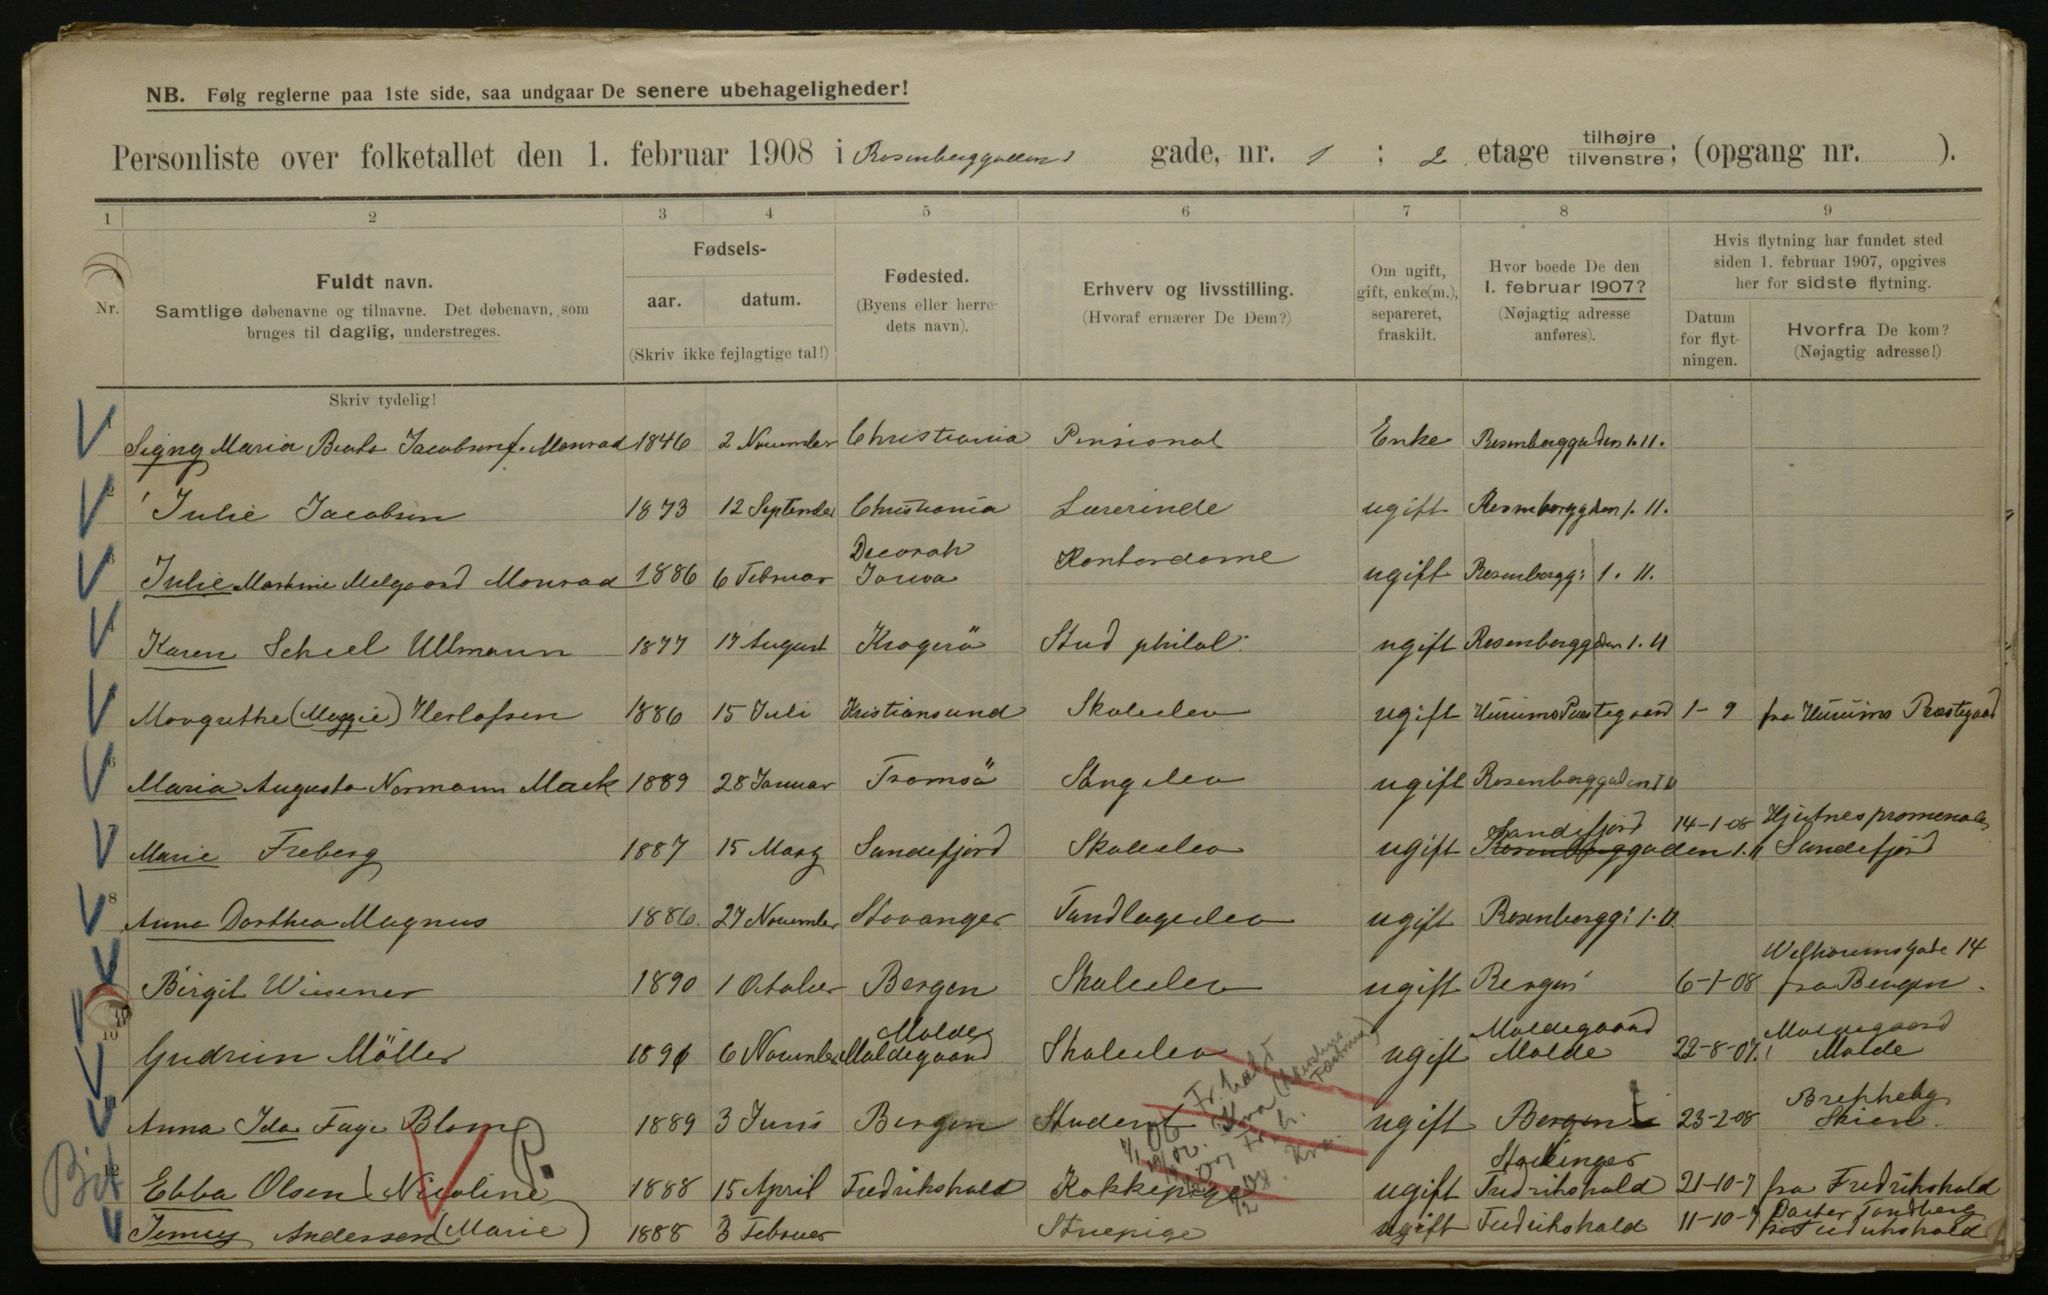 NB. Følg reglerne paa 1ste side, saa undgaar De senere ubehageligheder!
Personliste over folketallet den 1. februar 1908 i Rosenberggaden gade, nr. 1 ; 2 etage tilhøjre tilvenstre; (opgang nr. ).
1 2 3 4 5 6 7 8 9
Nr. Fuldt navn. Samtlige døbenavne og tilnavne. Det døbenavn, som bruges til daglig, understreges.
Fødsels- aar. datum. (Skriv ikke fejlagtige tal!)
Fødested. (Byens eller herredets navn).
Erhverv og livsstilling. (Hvoraf ernærer De Dem?)
Om ugift, gift, enke(m.), separeret, fraskilt.
Hvor boede De den 1. februar 1907? (Nøjagtig adresse anføres).
Hvis flytning har fundet sted siden 1. februar 1907, opgives her for sidste flytning.
Datum for flytningen.
Hvorfra De kom? (Nøjagtig adresse!)
Skriv tydelig!
1 Signy Maria Beate Jacobsen f. Monrad 1846 2 November Christiania Pensionat Enke Rosenberggaden 1. II.
2 Julie Jacobsen 1873 12 September Christiania Lærerinde ugift Rosenberggden 1. II.
3 Julie Martine Melgaard Monrad 1886 6 Februar Decorah Iowa Kontordame ugift Rosenbergg: 1. II.
4 Karen Scheel Ullmann 1877 17 August Kragerö Stud philol. ugift Rosenberggden 1. II
5 Margrethe (Maggie) Herlofsen 1886 15 Juli Kristiansund Skoleelev ugift Hurums Præstegaard 1-9 fra Hurums Præstegaard
6 Maria Augusta Normann Mack 1889 28 Januar Tromsö Sangelev ugift Rosenberggaden 1 II
7 Marie Freberg 1887 15 Marz Sandefjord Skoleelev ugift Sandefjord Rosenberggaden 1. II 14-1-08 Hjertnespromenade Sandefjord
8 Anna Dorthea Magnus 1886. 27 November Stavanger Tandlægeelev ugift Rosenbergg: 1. II.
9 Birgit Wiesener 1890 1 October Bergen Skoleelev ugift Bergen 6-1-08 Welhavensgade 14 fra Bergen.
10 Gudrun Möller 1891 6 November Molde Moldegaard Skoleelev ugift Moldegaard Molde 22-8-07. Moldegaard Molde
11 Anna Ida Faye Blom 1889 3 Juni Bergen Student ugift Bergen 23-2-08 Skien.
12 Ebba Olsen (Nicoline 1888 15 April Fredrikshald Kokkepige ugift Fredrikshald 21-10-7 fra Fredrikshald
Jenny Andersen (Marie) 1888 3 Februar Stuepige ugift Fredrikshald 11-10-7 fra Fredrikshald